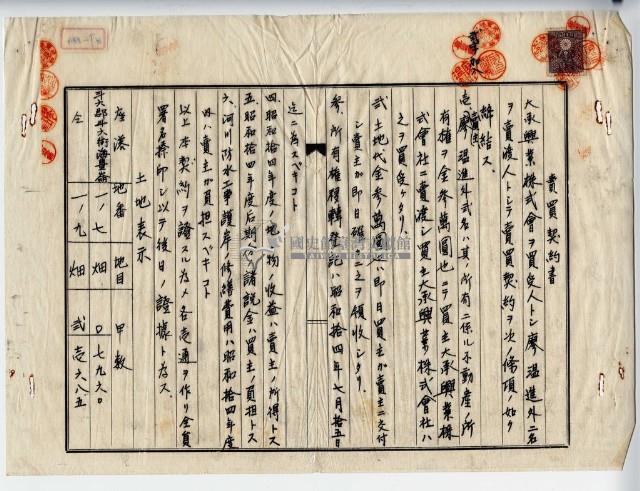 賣買契約書
大承興業株式會ヲ買受人トシ廖温進外二名
ヲ賣渡人トシテ賣買契約ヲ次ノ條項ノ如ク
締結ス
壱、賣主廖温進外弍名ハ其ノ所有ニ係ル不動産ノ所
有權ヲ金参萬圓也ニテ買主大承興業株
式會社ニ賣渡シ買主大承興業株式會社ハ
之ヲ買受ケタリ
弍、土地代金参萬圓ハ即日買主カ賣主ニ交付
シ賣主カ即日確ニ之ヲ領收シタリ
参、所有權移轉登記ハ昭和拾四年七月拾五日
迄ニ為スベキコト
四、昭和拾四年度ノ地上物ノ收益ハ賣主ノ所得トス
五、昭和拾四年度后期分ノ諸税金ハ買主ノ負担トス
六、河川防水工事護岸ノ修繕費用ハ昭和拾四年度
以ハ賣主カ負担スベキコト
以上本契約ヲ證スル為メ各壱通ヲ作リ全員
署名捺印シ以テ後日ノ證據ト為ス
土地表示
座落 地番 地目 甲數
斗六郡斗六街海豊崙 一ノ七 畑 〇.七九六〇
仝 一ノ九 畑 弍.壱六八五
國史館臺灣文獻館
TAIWAN HISTORICA